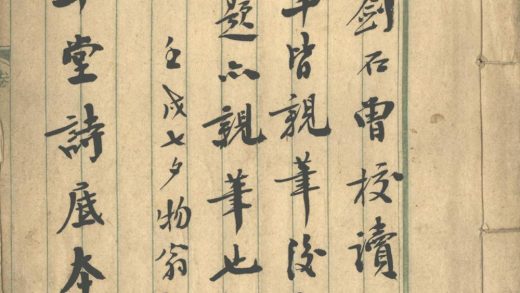 劍石曾校讀
皆親筆後
題亦親筆也
壬戌七夕物翁
堂詩底本